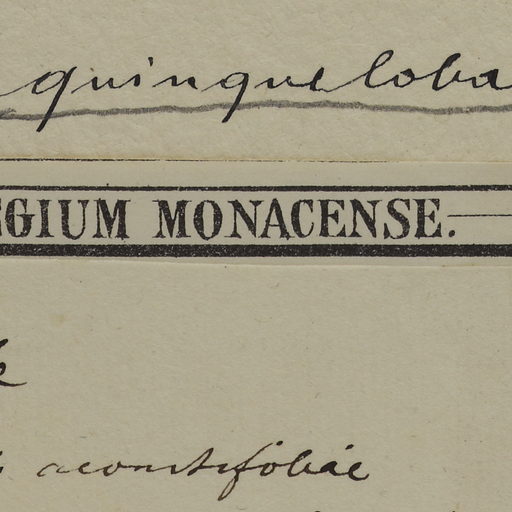 quinqueloba
EGIUM MONACENSE.
aconitifoliae